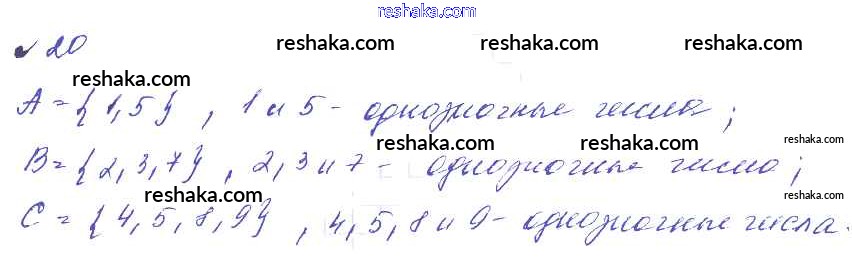 reshaka.com
№ 20 reshaka.com reshaka.com
reshaka.com
A = {1, 5}, 1 и 5 - однозначные числа;
reshaka.com reshaka.com reshaka.com
B = {2, 3, 7}, 2, 3 и 7 - однозначные числа;
reshaka.com reshaka.com reshaka.com
C = {4, 5, 8, 9}, 4, 5, 8 и 9 - однозначные числа.